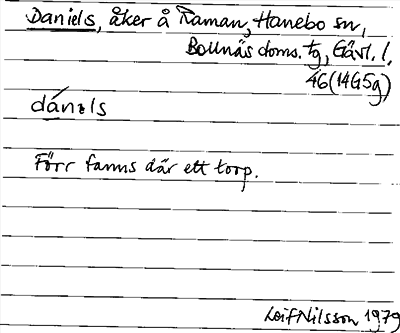 Daniels, åker å Raman, Hanebo sn,
Bollnäs doms. tg, Gävl. l,
46 (14G5g)
dánɩls
Förr fanns där ett torp.
Leif Nilsson 1979